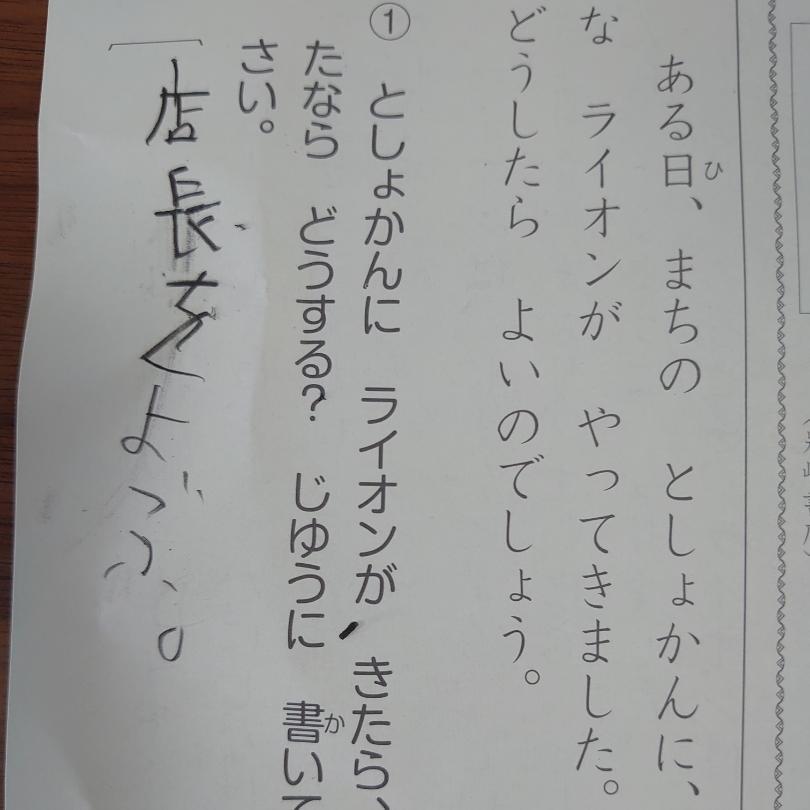 ある日、まちの としょかんに、
ひ
な ライオンが やってきました。
どうしたら よいのでしょう。
① としょかんに ライオンが きたら、
たなら どうする? じゆうに 書いて
か
さい。
店長をよぶ。